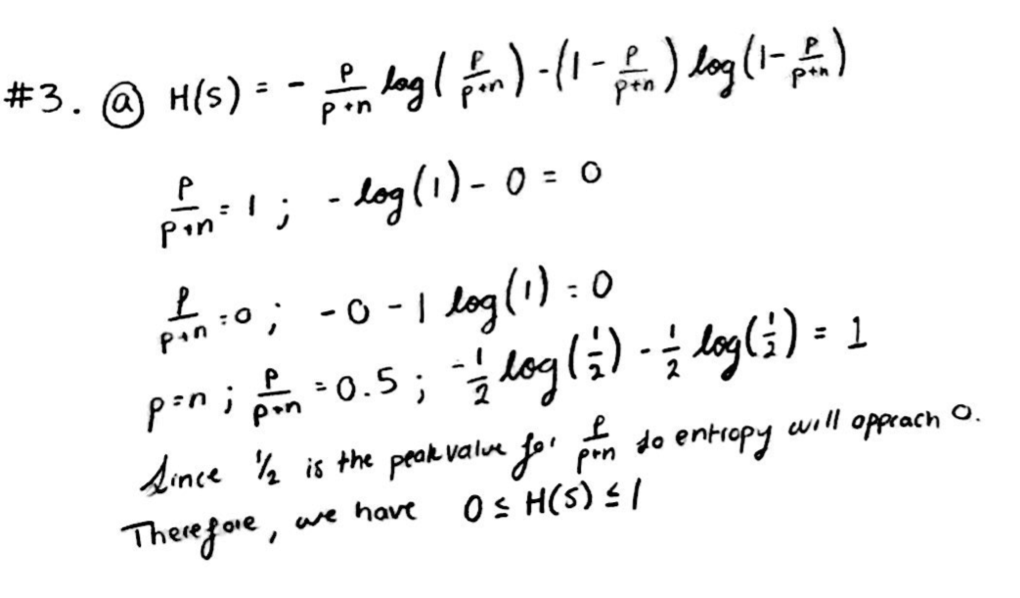 #3. ⓐ H(S) = - p/(p+n) log( p/(p+n) ) - (1 - p/(p+n) ) log(1- p/(p+n))
p/(p+n) = 1 ; - log(1) - 0 = 0
p/(p+n) = 0 ; - 0 - 1 log(1) = 0
p=n ; p/(p+n) = 0.5 ; -1/2 log(1/2) - 1/2 log(1/2) = 1
Since 1/2 is the peak value for p/(p+n) so entropy will opprach 0.
Therefore, we have 0 ≤ H(S) ≤ 1